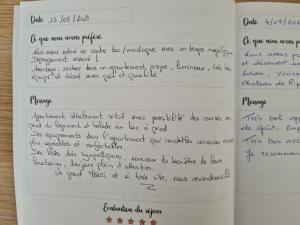 Date 13/08/2021
Ce que nous avons préféré
Nous avons adoré ce cadre lac/montagne avec un temps magnifique
Dépaysement assuré !
dans un appartement, propre, lumineux, très bien
équipé et décoré avec goût et qualité.
Message
Appartement idéalement situé avec possibilité des courses au
pied du logement et balade au lac à pied.
Des équipements dans l'appartement qui rendent les vacances encore
plus agréables et confortables.
Des hôtes très sympathiques, soucieux du bien être de leurs
locataires, toujours plein d'attention.
Un grand Merci et à très vite, nous reviendrons !!
Évaluation du séjour
Date 4/09/202
Ce que nous avons
Nous avons
et découvrir
Château de Rip
Message
Très bel app
de goût.
Très bon
Je recomman